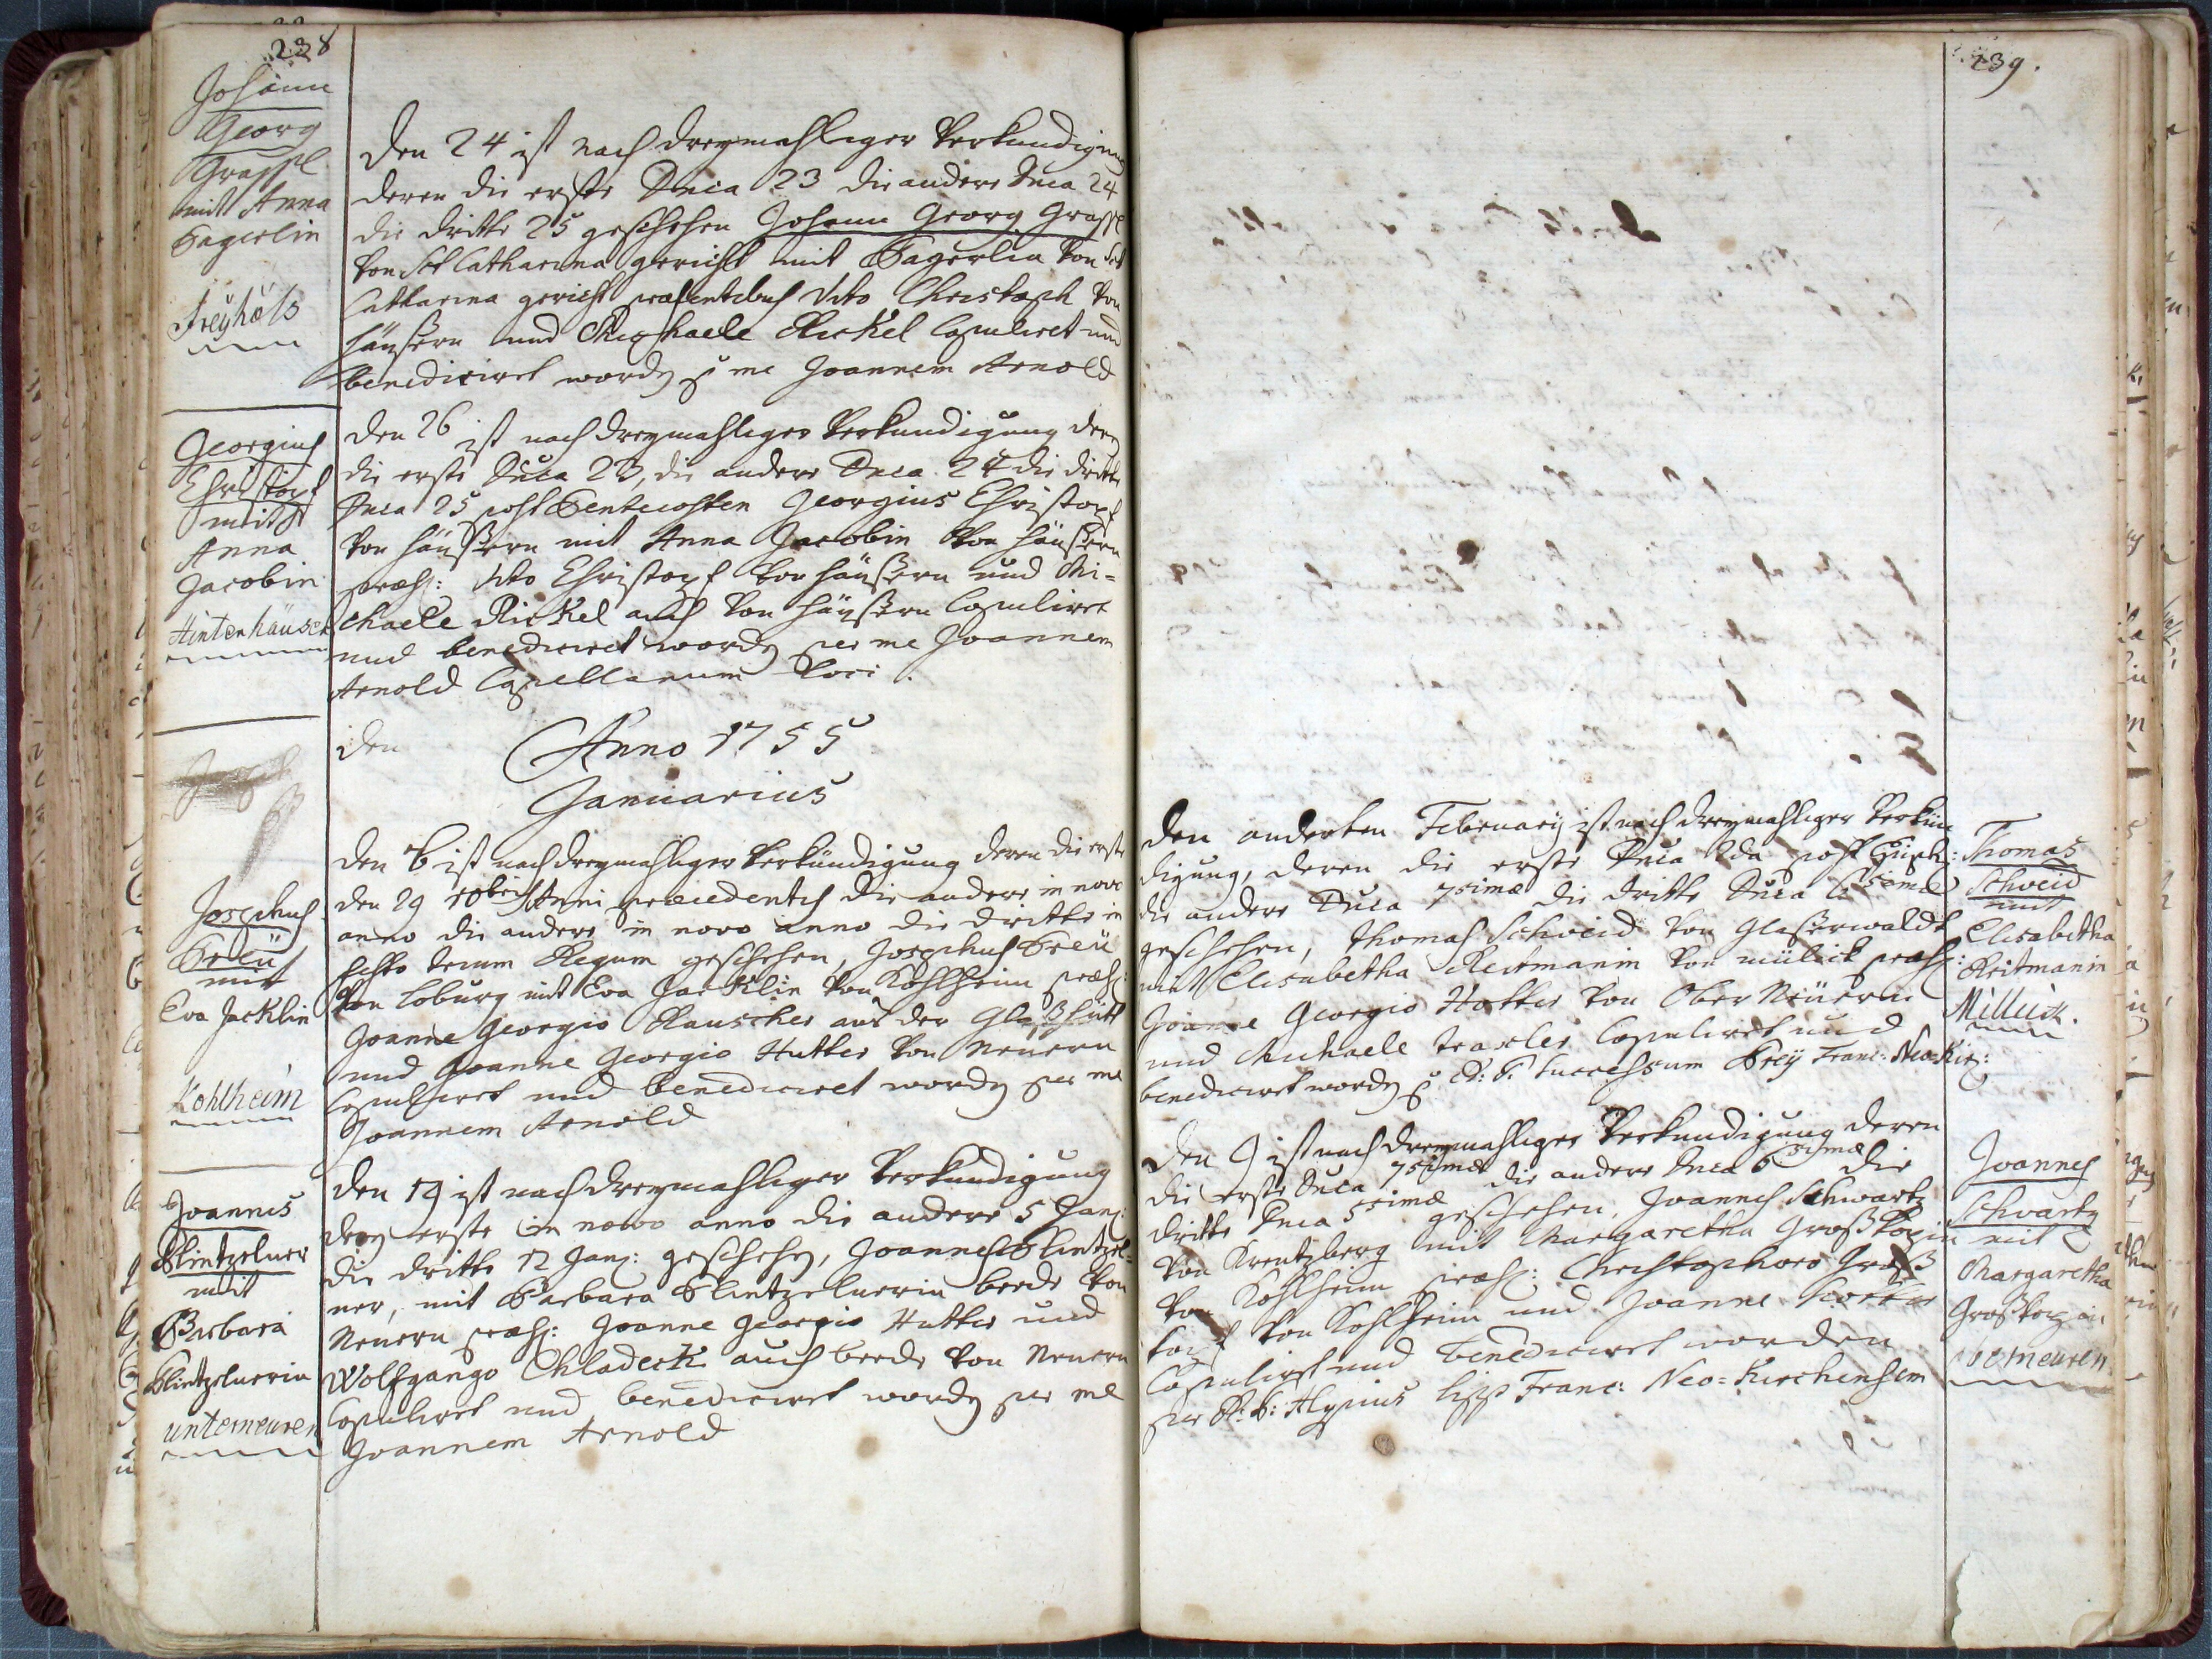 238
Johann
Georg
Grassl
mit Anna
Bagerlin
Freyhöls
Den 24 ist nach dreymahliger Verkundigung
deren die erste Dnica 23 die andere Dnica 24
die dritte 25 geschehen Johann Georg Grassl
von Sct Catharina gericht mit Bagerlin von Sct
Catharina gericht præsentibus Vito Christoph von
Häußern und Michaele Rickel Copuliret und
benediciret worden p me Joannem Arnold
Georgius
Christoph
mit
Anna
Jacobin
Hintenhäuser
Den 26 ist nach dreymahliger Verkundigung deren
die erste Dnica 23, die andere Dnica 24 die dritte
Dnica 25 post Pentecosten Georgius Christoph
von Häußern mit Anna Jacobin von Häußern
præs: Vito Christoph von Häußern und Mi=
chaele Rickel auch von Häußern Copuliret
und benediciret worden per me Joannem
Arnold Capellanum loci.
den Anno 1755
Januarius
Josephus
Breü
mit
Eva Jacklin
Kohlheim
Den 6 ist nach dreymahliger Verkündigung deren die erste
den 29 10bris Anni præcedentis die andere in novo
anno die andere in novo anno die dritte in
festo trium Regum geschehen, Josephus Breü
von Loburg mit Eva Jacklin von Kohlheim præs:
Joanne Georgio Rauscher aus der Glaßhütt
und Joanne Georgio Hutter von Neuern
Copuliret und benediciret worden per me
Joannem Arnold
Joannes
Plintzelner
mit
Barbara
Plintzelnerin
unterneuren
Den 19 ist nach dreymahliger Verkundigung
deren erste in novo anno die andere 5 Janj:
die dritte 12 Janj: geschehen, Joannes Plintzel=
ner, mit Barbara Plintzelnerin beede von
Neuern præs: Joanne Georgio Hutter und
Wolfgango Chladeck auch beede von Neuern
Copuliret und benediciret worden per me
Joannem Arnold
239.
Den anderten February ist nach dreymahliger Verkün
digung, deren die erste Dnica 2da post Epiph:
die andere Dnica 7simæ die dritte Dnica 6simæ
geschehen, Thomas Schweid von Glaserwaldt
mit Elisabetha Reitmanin von Mülick præs:
Joanne Georgio Hotter von Ober Neüern
und Michaele Traxler Copuliret und
benediciret worden p R: P. Successum Frey Franc: Neo-Kir:
Thomas
Schweid
mit
Elisabetha
Reitmanin
Millick.
Den 9 ist nach dreymahliger Verkundigung deren
die erste Dnica 7simæ die andere Dnica 6simæ die
dritte Dnica 5simæ geschehen, Joannes Schwartz
von Kreutzberg mit Margaretha Großkopin
von Kohlheim præs: Christophoro Groß
kopf von Kohlheim und Joanne
Copuliret und benediciret worden
per R: P: Alypius Franc: Neo=Kirchensem
Joannes
Schwartz
mit
Margaretha
Großkopin